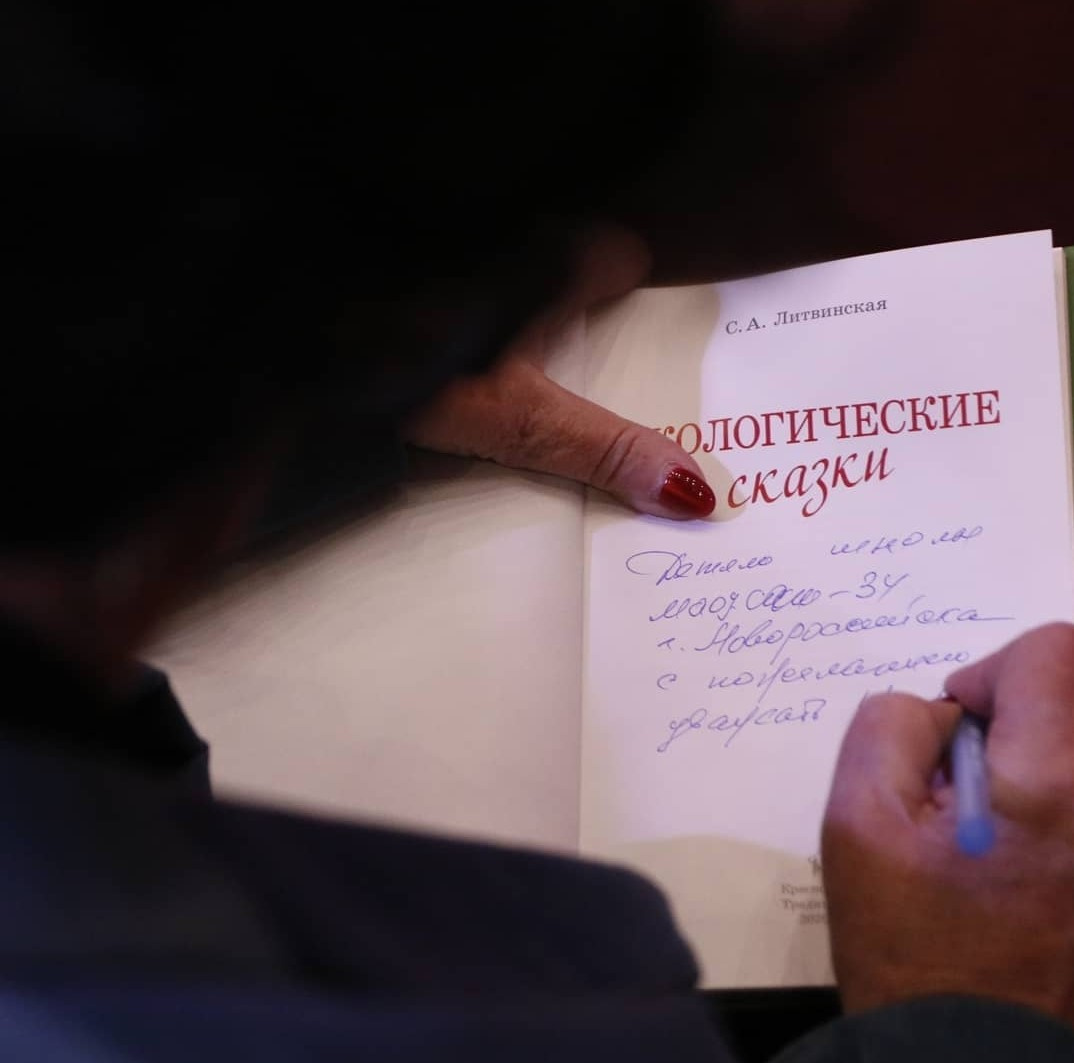 С. А. Литвинская
КОЛОГИЧЕСКИЕ
сказки
Детям школы
МАОУ СОШ-34
г. Новороссийска
с пожеланием
уважать